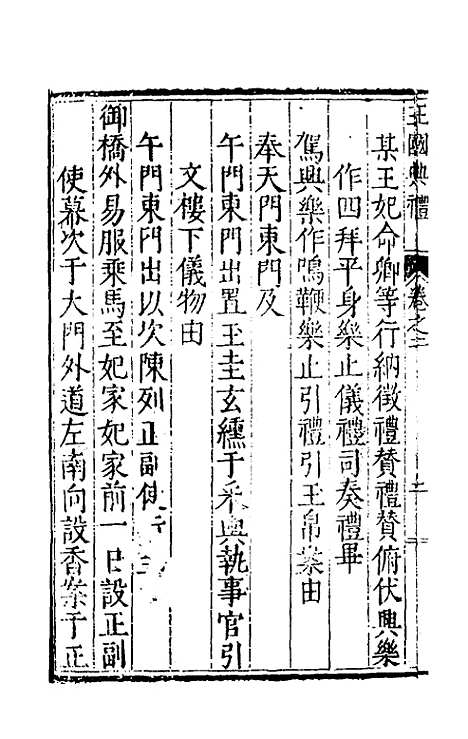 王國典禮 卷之二 二
某王妃命卿等行納徵禮贊禮贊俯伏興樂
作四拜平身樂止儀禮司奏禮畢
駕興樂作鳴鞭樂止引禮引玉帛案由
奉天門東門及
午門東門出置玉圭玄纁于采輿執事官引
文樓下儀物由
午門東門出以次陳列正副使
御橋外易服乘馬至妃家妃家前一日設正副
使幕次于大門外道左南向設香案于正